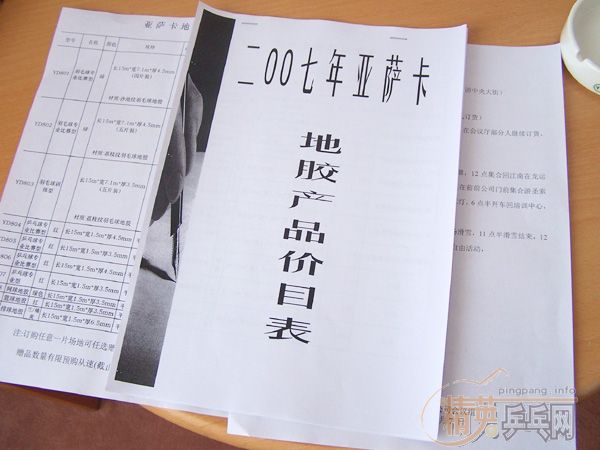 亚萨卡地
型号 名称 颜色 规格
YD801 羽毛球专业比赛型 绿 长15m*宽7.1m*厚4.5mm (四片装)
材质:沙地纹羽毛球地胶
YD802 羽毛球专业比赛型 绿 长15m*宽7.1m*厚4.5mm (五片装)
材质:荔枝纹羽毛球地胶
YD803 羽毛球训练型 长15m*宽7.1m*厚3.5mm (五片装)
材质:荔枝纹羽毛球地胶
YD804 乒乓球专业比赛型 红 长15m*宽1.5m*厚4.5mm
乒乓球专业型 红 长15m*宽1.5m*厚3.5mm
网球地胶 绿色 长15m*宽1.5m*厚3.5mm
篮球地胶 红 长15m*宽1.5m*厚4.5mm
排球地胶 长15m*宽1.5m*厚6.5mm
注:订购任意一片场地可任选
赠品数量有限预购从速(截
二00七年亚萨卡
地胶产品价目表
中央大街)
订货)
在会议厅部分人继续订货,
12点集合回江南在龙运
在葡萄公司门前集合游圣索
灯,6点半开车回培训中心,
滑雪,11点半滑雪结束,12
自由活动。
pingpang.info
精英乒乓网